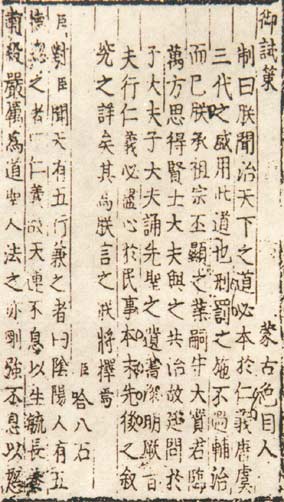 御試策 蒙古色目人
制曰朕聞治天下之道必本於仁義唐虞
三代之盛用此道也刑罰之施不過輔治
而已朕承祖宗丕顯之業嗣守大寶君臨
萬方思得賢士大夫與之共治故延問於
子大夫子大夫誦先聖之遺書深明厥旨
夫行仁義必盡心於民事本末先後之叙
究之詳矣其爲朕言之朕將擇焉
臣 哈八石
臣對臣聞天有五行兼之者曰陰陽人有五
常惣之者曰仁義故天運不息以生毓長養
肅殺嚴厲爲道聖人法之亦剛強不息以